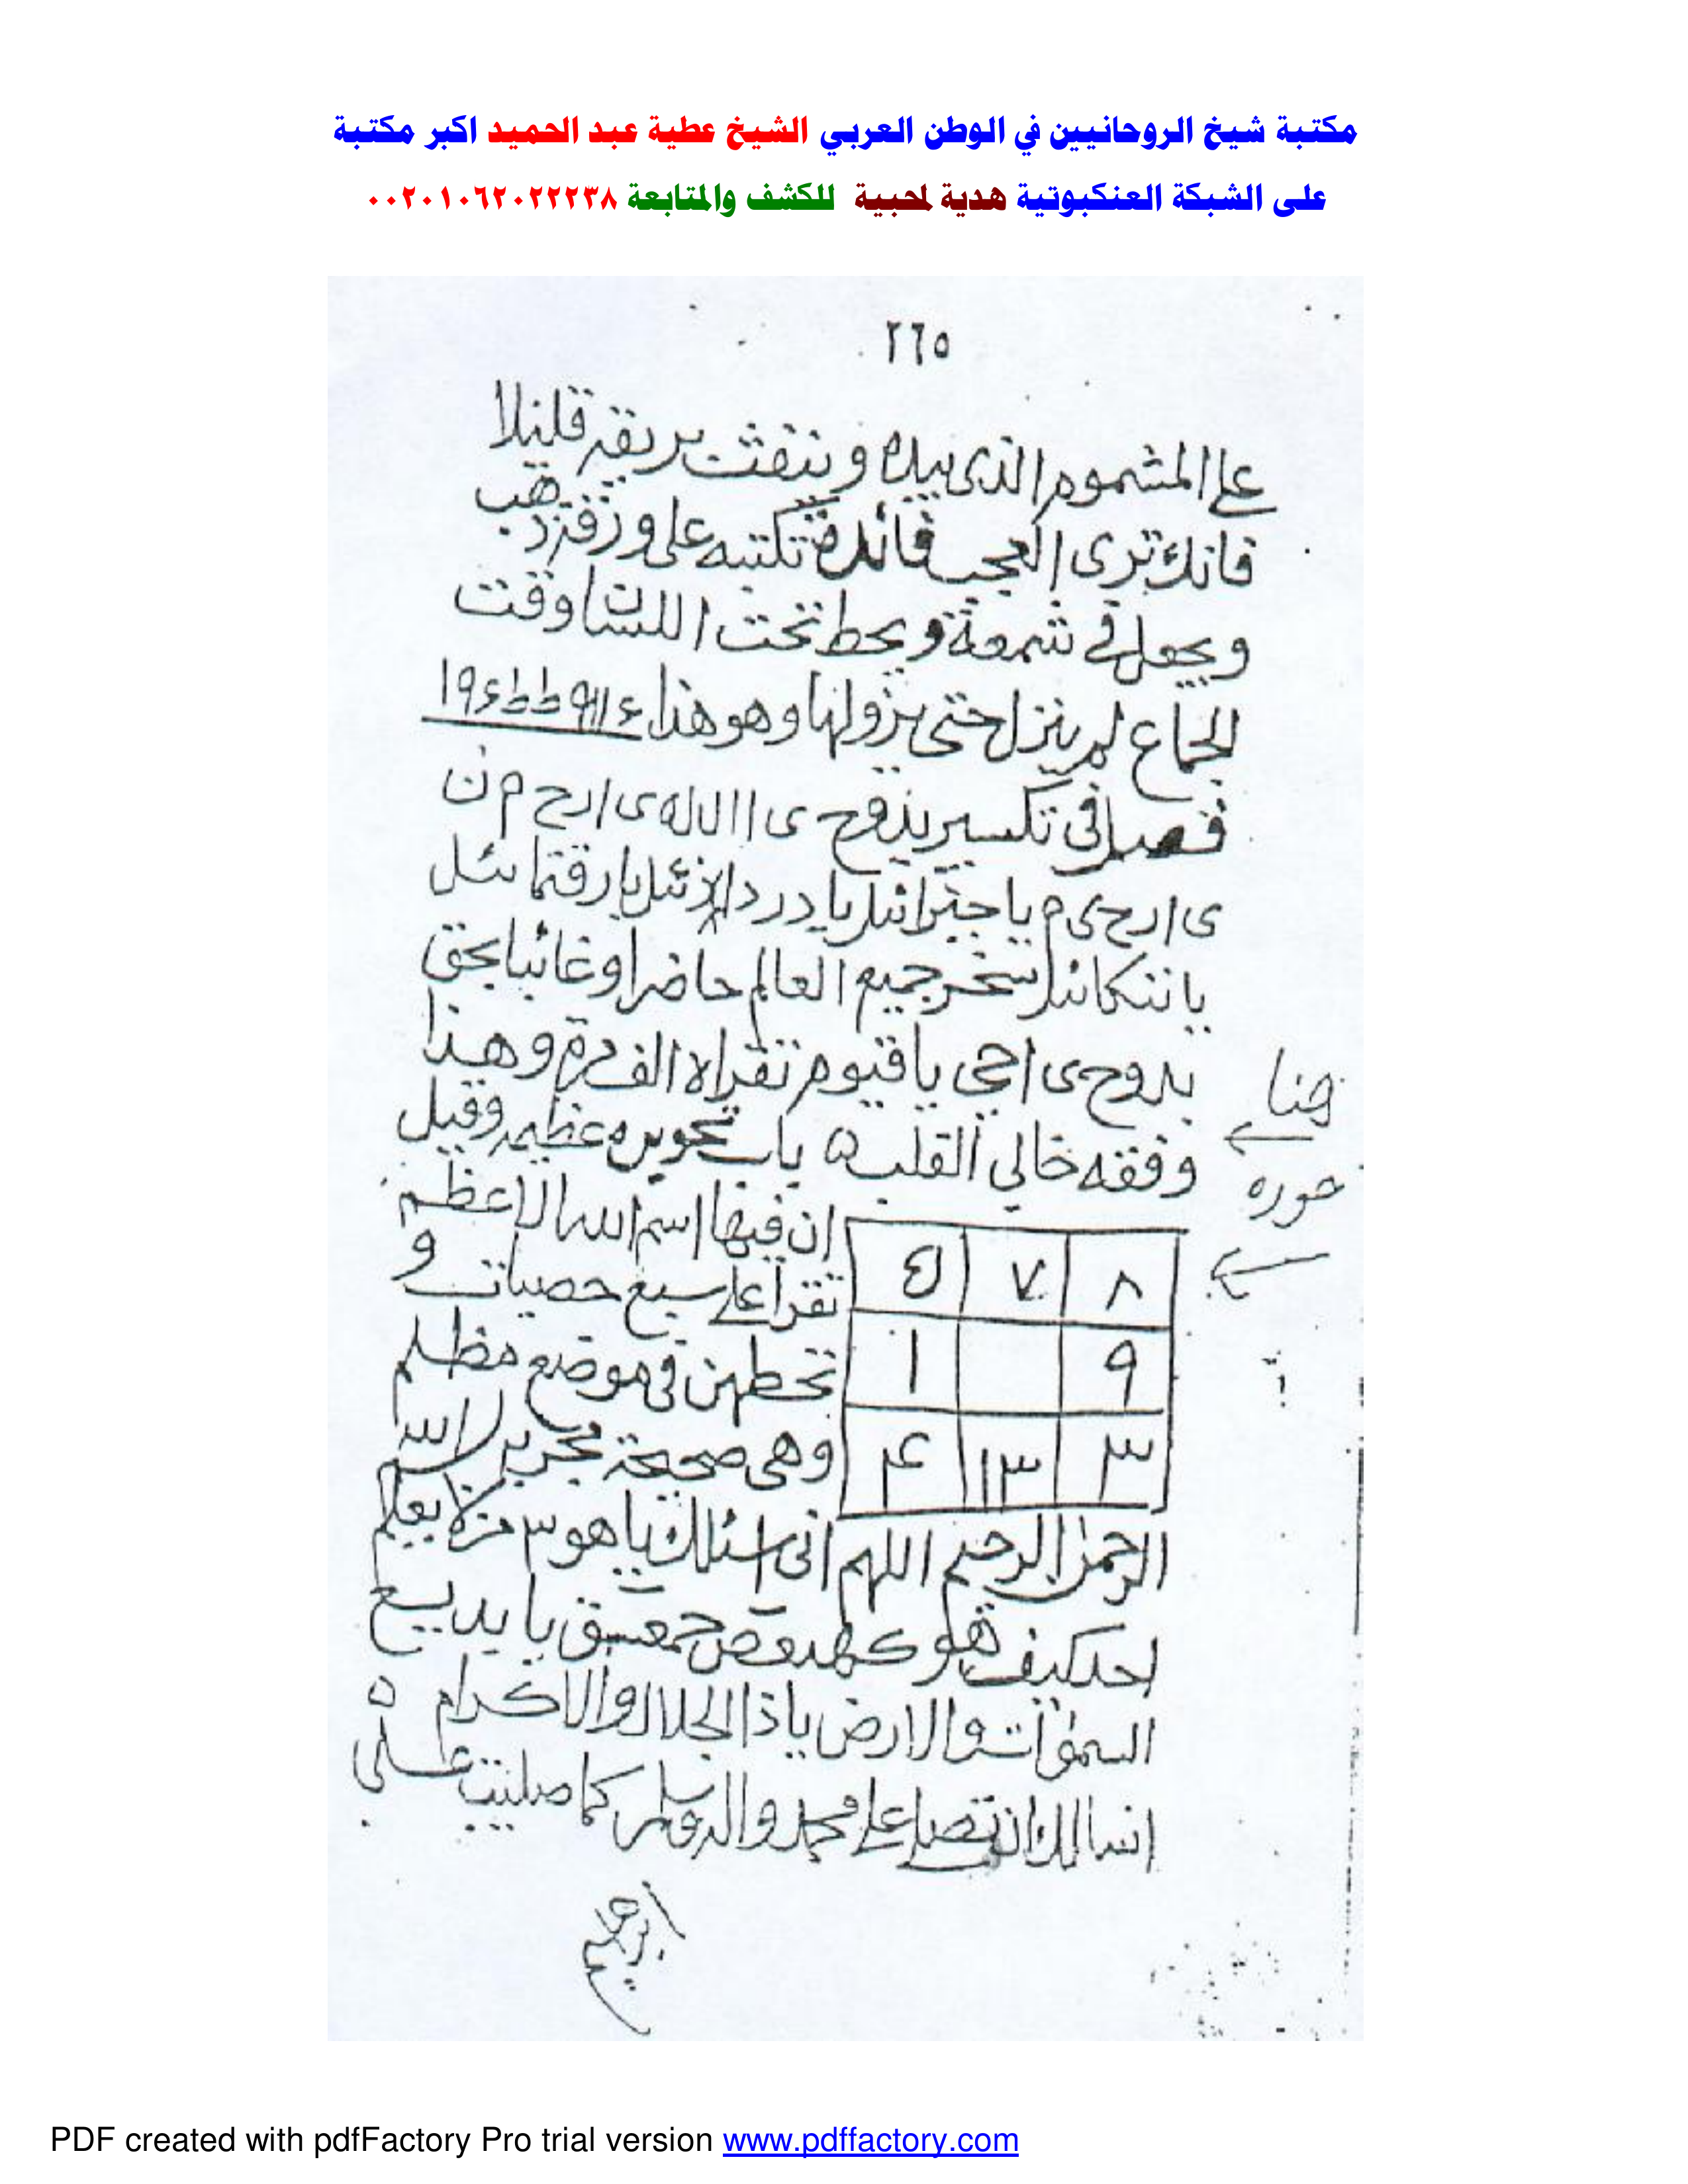 مكتبة شيخ الروحانيين في الوطن العربي الشيخ عطية عبد الحميد اكبر مكتبة
على الشبكة العنكبوتية هدية لمحبية للكشف والمتابعة ٠٠٢٠١٠٦٢٠٢٢٢٣٨
٢٦٥
على المشموم الذى بيده و تنفث بريقه قليلا
فانك ترى العجب فائدة تكتبه على ورقة ذهب
ويجعل فى شمعة ويحط تحت اللسان وقت
الجماع لم ينزل حتى يزولها وهو هذا
فصل فى تكسير بدوح ى ا ا ل ل ه ى ا ر ح م ن
ى ا ر ح ى م يا جبرائيل يا دردائيل يا رقتمائيل
يا تنكائيل سخر جميع العالم حاضرا وغائبا بحق
بدوح ى احى يا قيوم تقراه الف مرة وهذا
هنا
وفقه خالي القلب ه باب تحويره عظيمه وقيل
حوره
ان فيها اسم الله الاعظم
٨ ٧ ٤
تقرا على سبع حصيات و
٩ ١
تحطهن فى موضع مظلم
وهى صحيحة مجربه بسم الله
٣ ١٣ ۴
الرحمن الرحيم اللهم انى اسئلك يا هو ٣ مرة يعلم
احد كيف هو كهيعص حمعسق يا بديع
السموات والارض يا ذا الجلال والاكرام ه
اسالك ان تصلى على محمد واله وسلم كما صليت على
PDF created with pdfFactory Pro trial version www.pdffactory.com